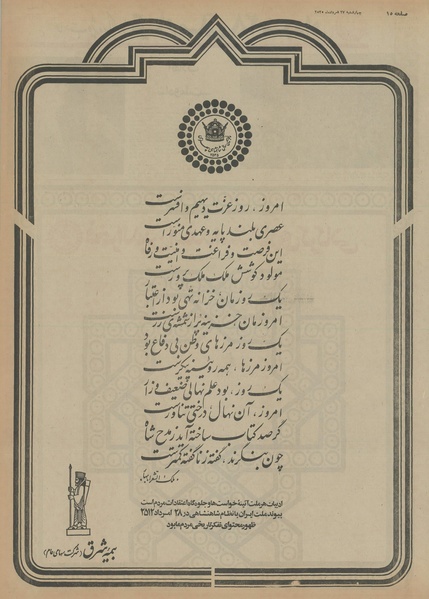 صفحه ۱۵
امروز، روز عزت دیهیم و افسر است
عصری بلند پایه و عهدی منور است
این فرصت و فراغت و امنیت و رفاه
مولود کوشش ملک ملک پرور است
یک روز مان خزانه تهی بود از اعتبار
امروزمان خزینه پر از شمش و زر است
یک روز مرزهای وطن بی دفاع بود
امروز مرزها، همه رویینه پیکر است
یک روز، بود علم نهالی ضعیف و زار
امروز، آن نهال درختی تناور است
گر صد کتاب ساخته آید ز مدح شاه
چون بنگرند، گفته ز ناگفته کمتر است
ادبیات هر ملت آئینهٔ خواست‌ها و جلوه‌گاه اعتقادات مردم است
پیوند ملت ایران با نظام شاهنشاهی در ۲۸ امرداد ۲۵۱۲
ظهور محتوای تفکر تاریخی مردم ما بود
بیمه شرق (شرکت سهامی عام)